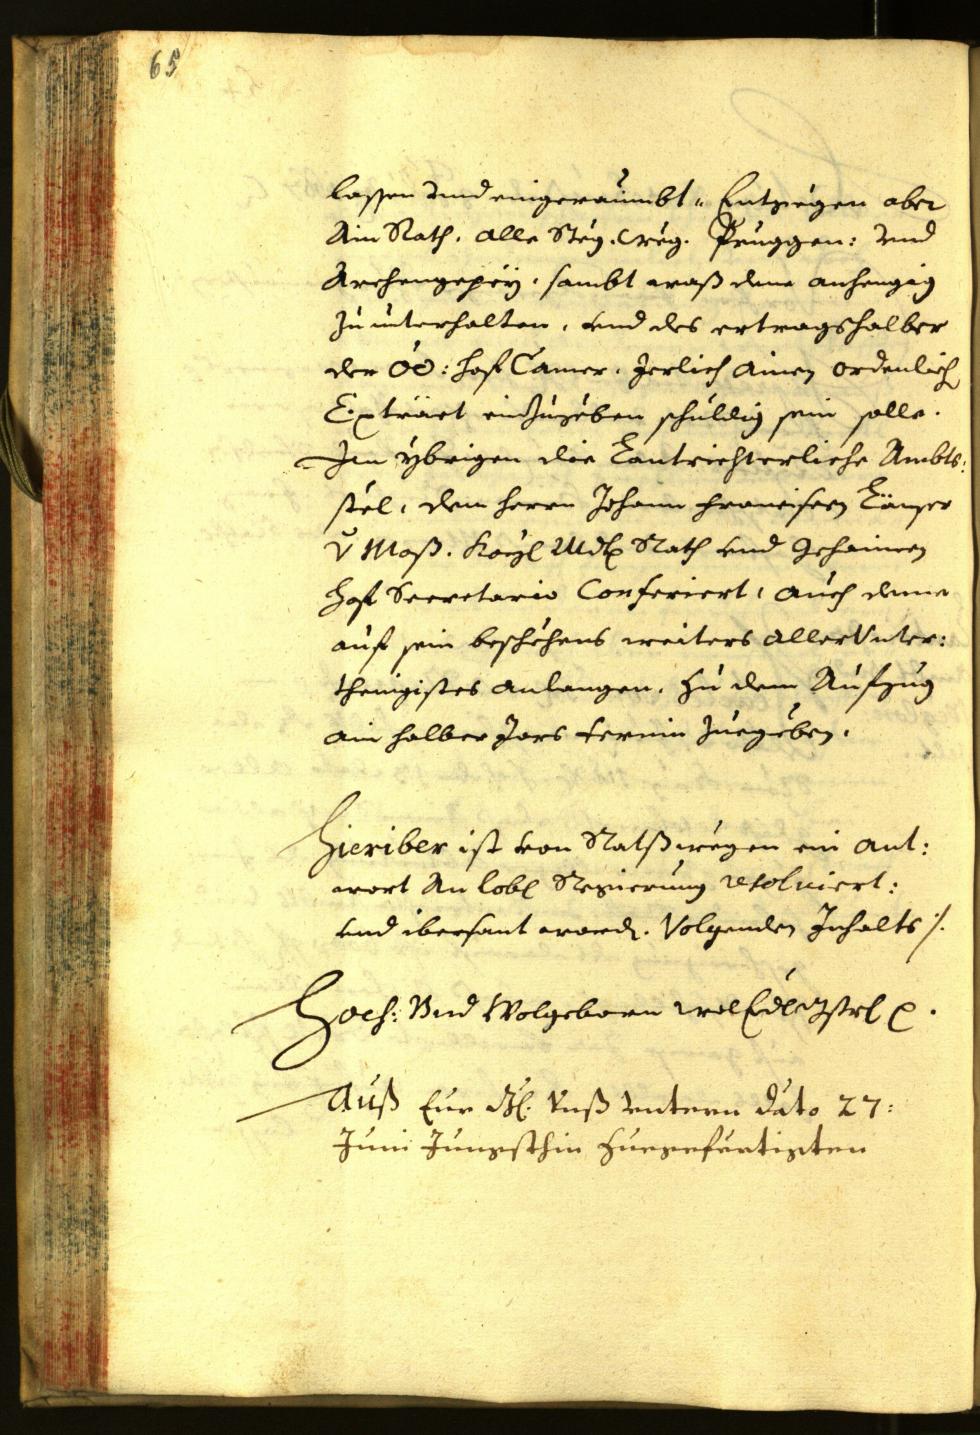 65
lassen vnd eingeraumbt, Entgegen aber
Ain Rath, alle Steg, weg, Pruggen: vnd
Archengepey, sambt waß deme anhengig
zu unterhalten, vnd des ertragshalber
der OÖ: Hof Camer, Jerlich ainen ordenlich
Extract einzugeben schuldig sein solle.
Im ybrigen die Lantrichterliche Ambts:
stel, dem herrn Johann Francisco
v Maß. Kayl Mdt Rath vnd Gehaimen
Hof Secretario Conferiert, auch deme
auf sein beschehens weiters allervnter:
thenigistes anlangen, zu dem Aufzug
ain halber Jars termin zuegeben.
Hieriber ist von Ratßwegen ein ant:
wort An lobl Regierung resolviert:
vnd ibersant word. Volgenden Inhalts /.
Hoch: Vnd Wolgeborn wol Edl Gstr
Auß Eur Vnß vntern dato 27:
Juni Jungsthin zuegefertigten